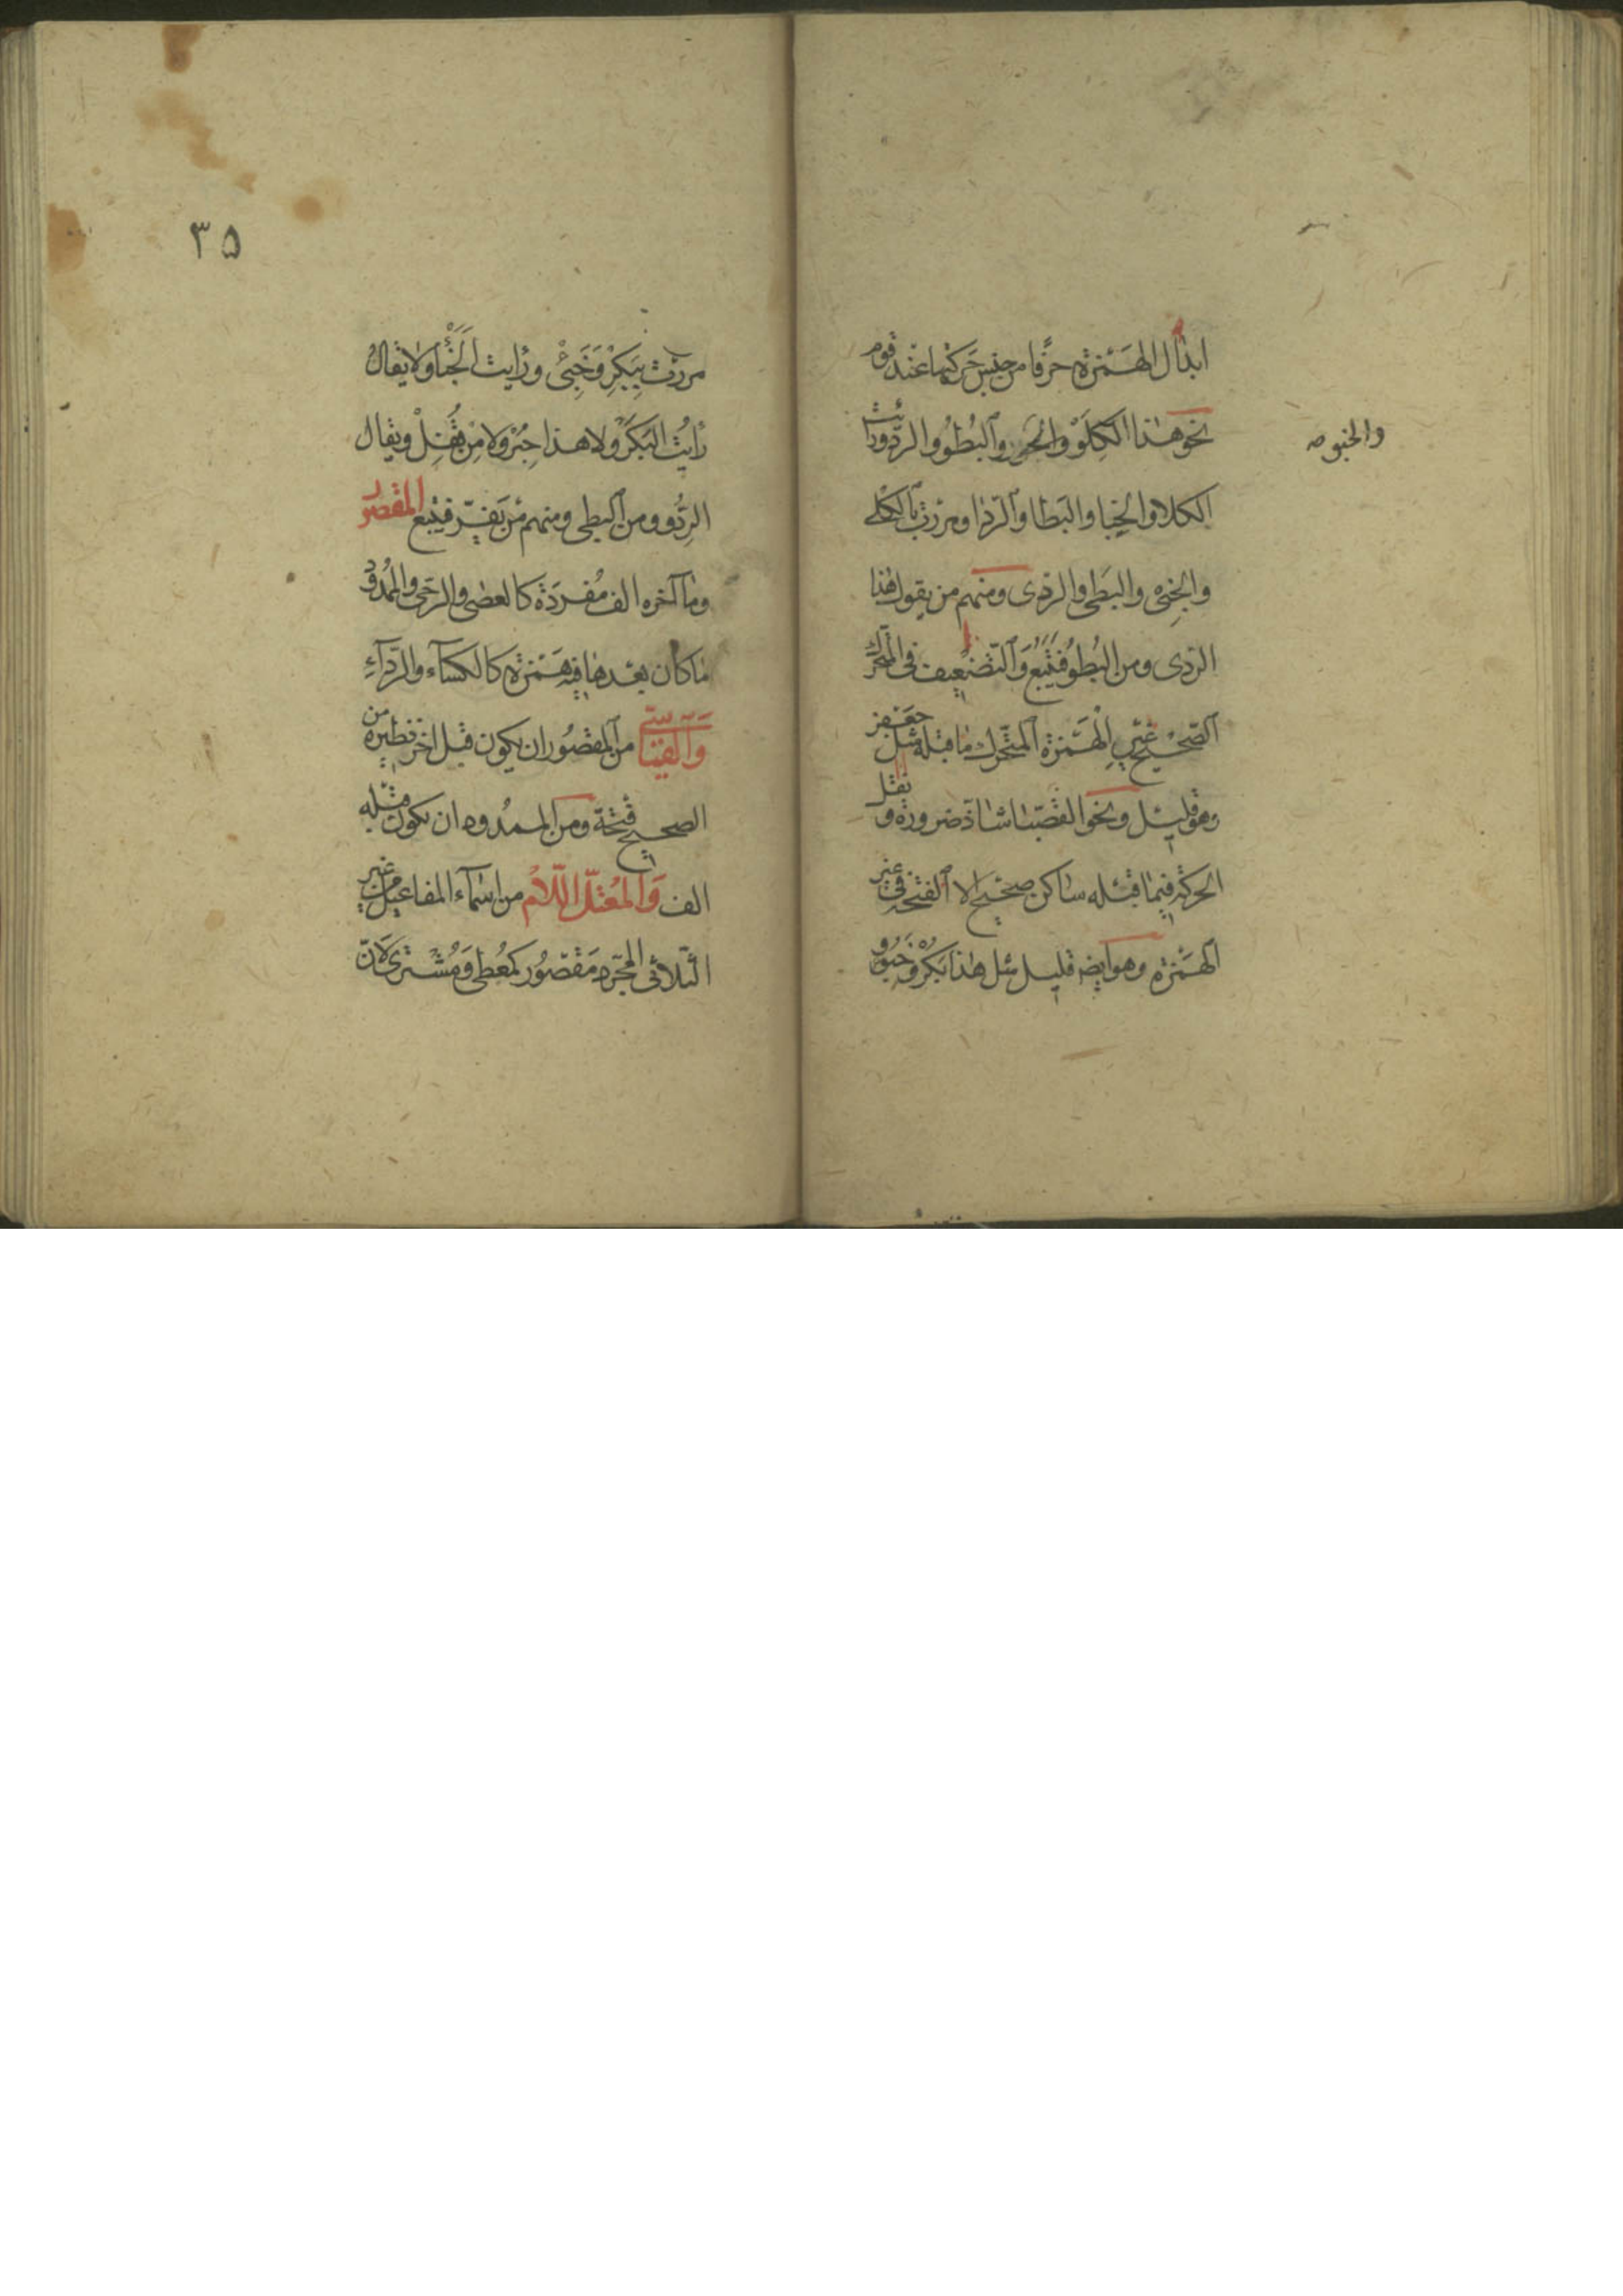 ابدال الهمزة حرفا من جنس حركتها عند قوم
نحو هذا الكلو والبطو والردو ورايت
والخبو صح
الكلا والخبا والبطا والردا ومررت بالكلى
والخبى والبطى والردى ومنهم من يقول هذا
الردى ومن البطو فيتبع والتضعيف فى المتحرك
الصحيح غير الهمزة المتحرك ما قبله مثل جعفر
وهو قليل ونحو القصبا شاذ ضرورة و نقل
الحركة فيما قبله ساكن صحيح الا الفتحة فى غير
الهمزة وهو ايضا قليل مثل هذا بكر وخبؤ
٣٥
مررت ببكر وخبئ ورايت الخبأ ولا يقال
رايت البكر ولا هذا حبر ولا من قفل ويقال
الردو ومن البطى ومنهم من يفر فيتبع المقصور
وما آخره الف مفردة كالعصى والرحى والممدود
ما كان بعدها فيه همزة كالكسآء والردآء
والقياسى من المقصور ان يكون قبل اخر نظيره من
الصحيح فتحة ومن الممدود ان يكون قبله
الف والمعتل اللام من اسمآء المفاعيل من غير
الثلاثى المجرد مقصور كمعطى ومشترى لان